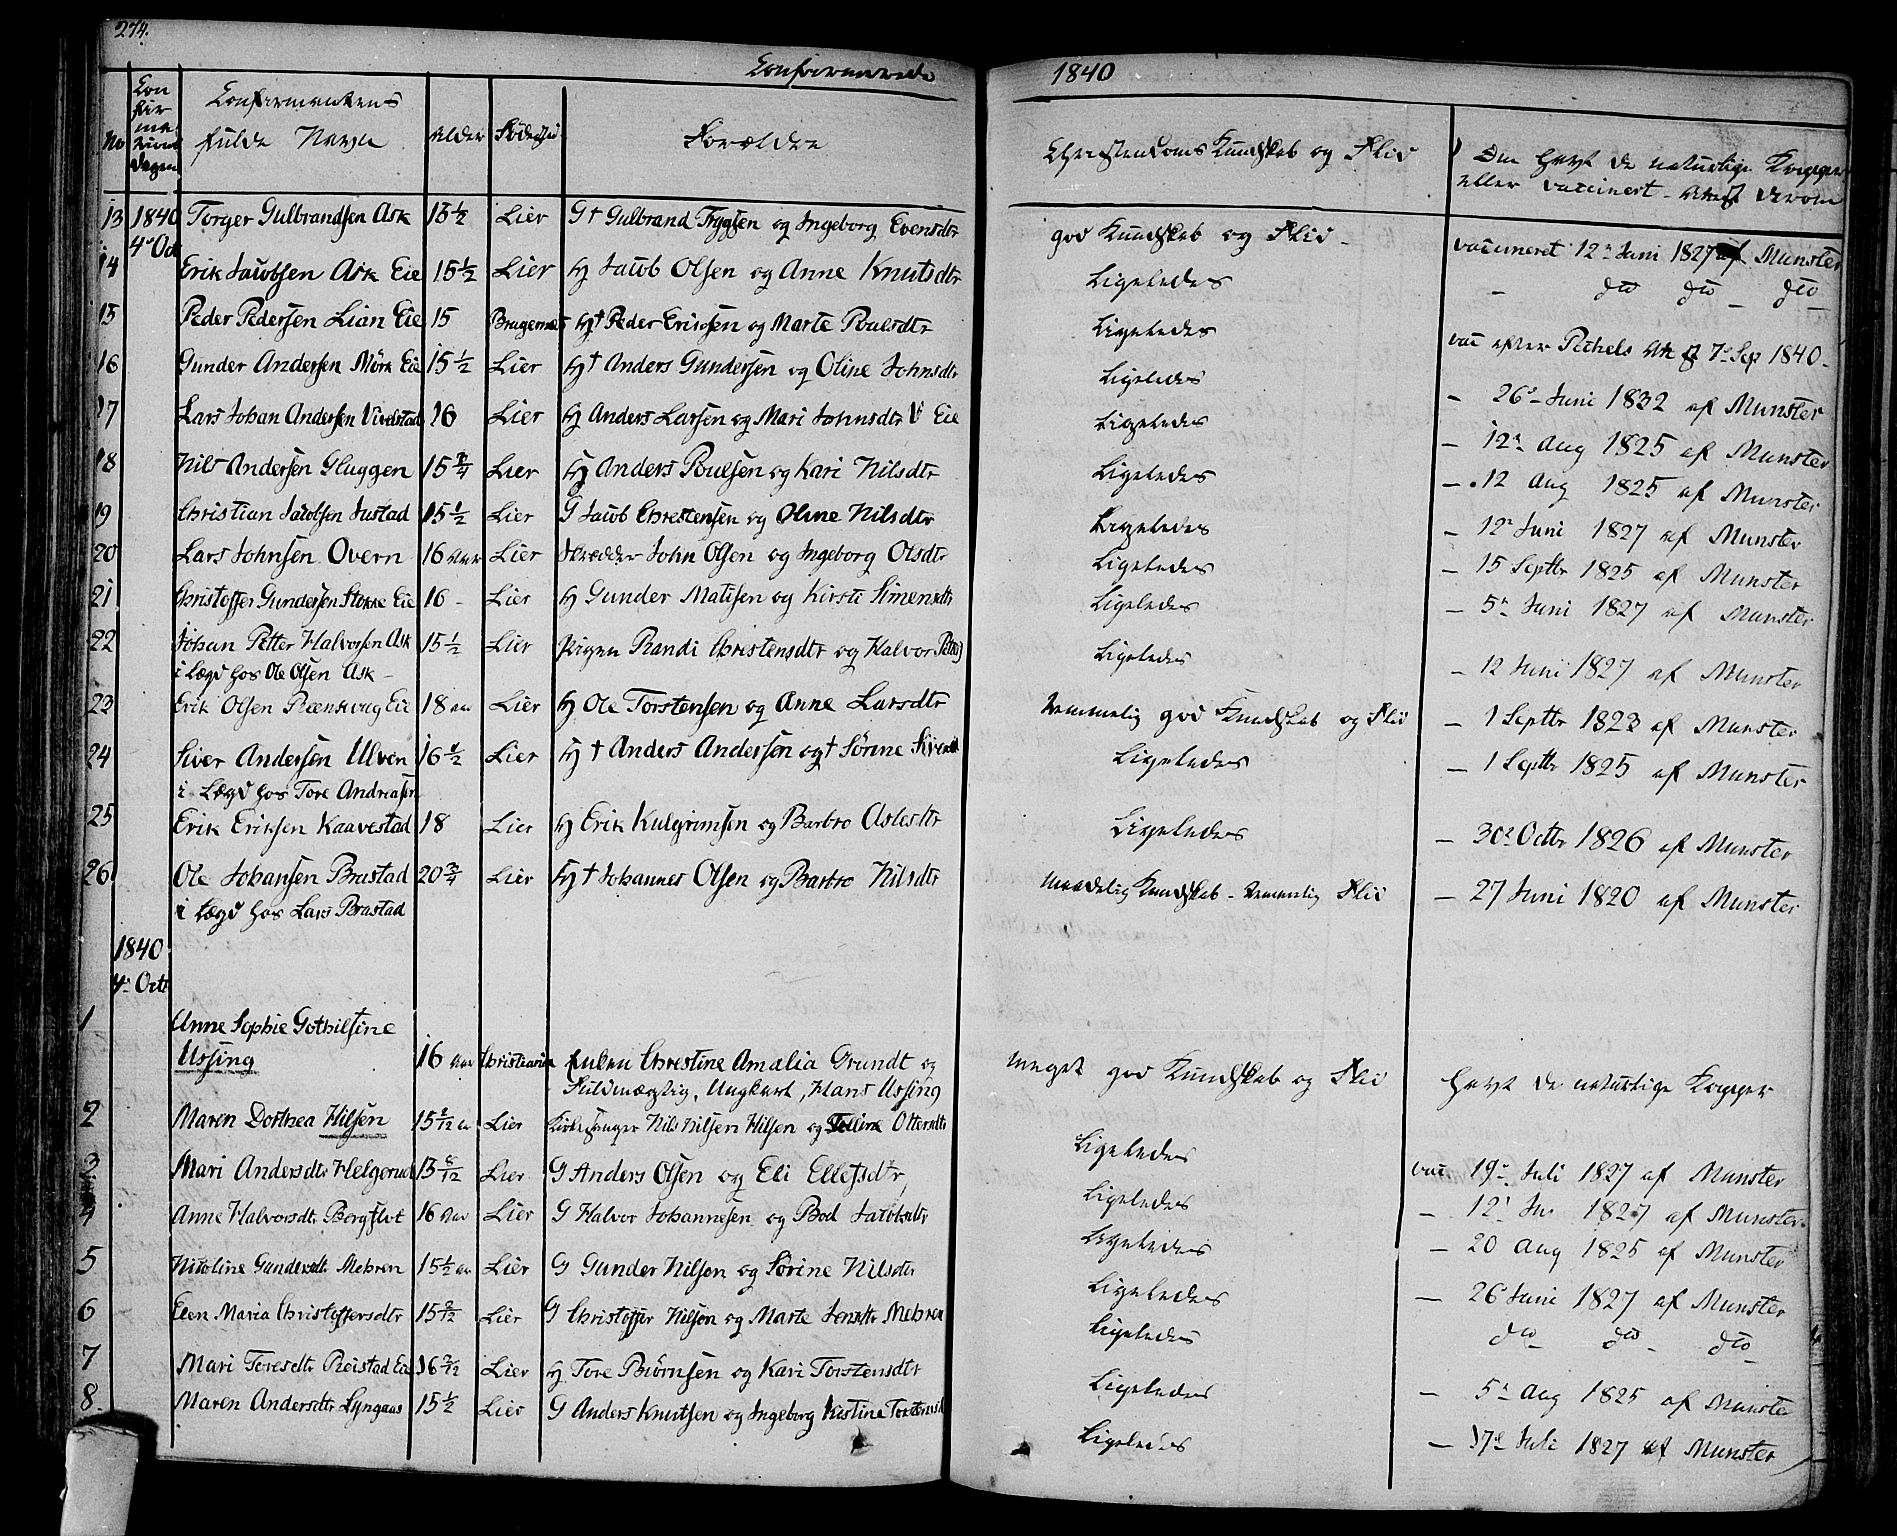 274.
Confirmerede 1840
No Con fir ma tions Dagen Confirmentens fulde Navn Alder Fødested Forældre Christendoms Kundskab og Flid Om havt de naturlige Kopper eller vaccineret - Attest derom
13 1840 4de Oct Torger Gulbrandsen Ask 15 1/2 Lier G † Gulbrand Trygsen og Ingeborg Evensdtr god Kundskab og Flid - vaccineret 12te Juni 1827 af Munster
14 Erik Jacobsen Ask Eie 15 1/2 Lier Hj Jacob Olsen og Anne Knutsdtr Ligeledes - dto dto - dto
15 Peder Pedersen Lian Eie 15 Bragernæs Hj † Peder Ericksen og Marte Poulsdtr Ligeledes vac efter Pethels Att af 7de Sep 1840.
16 Gunder Andersen Mörk Eie 15 1/2 Lier Hj † Anders Gundersen og Oline Johnsdtr Ligeledes - 26de Juni 1832 af Munster
17 Lars Johan Andersen Vivelstad 16 Lier Hj Anders Larsen og Mari Johnsdtr V Eie Ligeledes - 12te Aug 1825 af Munster
18 Nils Andersen Gluggen 15 3/4 Lier Hj Anders Poulsen og Kari Nilsdtr Ligeledes - 12 Aug 1825 af Munster
19 Christian Jacobsen Justad 15 1/2 Lier G Jacob Christensen og Oline Nilsdtr Ligeledes - 12te Juni 1827 af Munster
20 Lars Johnsen Overn 16 Aar Lier Skrædder John Olsen og Ingeborg Olsdtr Ligeledes - 15 Septbr 1825 af Munster
21 Christoffer Gundersen Stokke Eie 16 - Lier Hj Gunder Matisen og Kirsti Simensdtr Ligeledes - 5te Juni 1827 af Munster
22 Johan Petter Halvorsen Ask 15 1/2 Lier Pigen Randi Christensdtr og Halvor Ligeledes - 12 Juni 1827 af Munster
i Lægd hos Ole Olsen Ask -
23 Erik Olsen Eie 18 Aar Lier Hj Ole Torstensen og Anne Larsdtr temmelig god Kundskab og Flid - 1 Septbr 1823 af Munster
24 Siver Andersen Ulven 16 1/2 Lier Hj † Anders Andersen og † Sörine Ligeledes - 1 Septbr 1825 af Munster
i Lægd hos Tore Andreasen
25 Erik Eriksen Kaavestad 18 Lier Hj Erik Kulgrimsen og Barbro Aslesdtr Ligeledes - 30te Octbr 1826 af Munster
26 Ole Johansen Brastad 20 3/4 Lier Hj † Johannes Olsen og Barbro Nilsdtr maadelig Kundskab - temmelig Flid - 27 Juni 1820 af Munster
i Lægd hos Lars Brastad
1840
4de Octr
1 Anne Sophie Gothilfine
Ussing 16 Aar Christiania Enken Christine Amalia Grundt og meget god Kundskab og Flid havt de naturlige Kopper
Fuldmægtig, Ungkarl, Hans Ussing
2 Maren Dorthea Hilsen Lier Kirkesanger Nils Nilsen Hilsen og Ottersdtr Ligeledes vac 19de Juli 1827 af Munster
3 Mari Andersdtr Helgerud Lier G Anders Olsen og Eli Ellefsdtr Ligeledes - 12te 1827 af Munster
4 Anne Halvorsdtr Bergflot 16 Aar Lier G Halvor Johannesen og Bod Jacobsdtr Ligeledes - 20 Aug 1825 af Munster
5 Nicoline Gundersdtr Mehren 15 1/2 Aar Lier G Gunder Nilsen og Sörine Nilsdtr Ligeledes - 26 Juni 1827 af Munster
6 Elen Maria Christoffersdtr Lier G Christoffer Nilsen og Marte Jensdtr Mehren Ligeledes dto dto - dto
7 Mari Toresdtr Reistad Eie Lier Hj Tore Biörnsen og Kari Torstensdtr Ligeledes - 5te Aug 1825 af Munster
8 Maren Andersdtr Lyngaas 15 1/2 Lier G Anders Knutsen og Ingeborg Kistine Ligeledes - 17de Juli 1827 af Munster